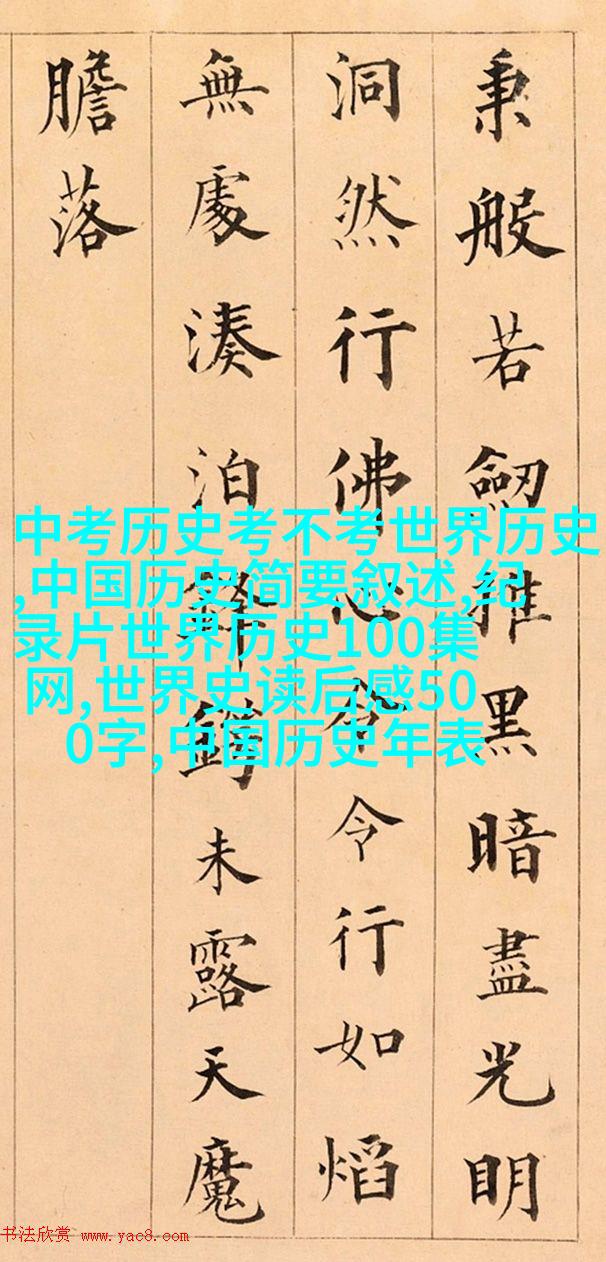 秉般若劒摧黑暗盡光明
洞然行佛心令行如熖
無處湊泊鋒鍔未露天魔
膽落
中考历史考不考世界历史
,中国历史简要叙述,纪
录片世界历史100集
网,世界史读后感50
0字,中国历史年表
书法欣赏 www.yac8.com